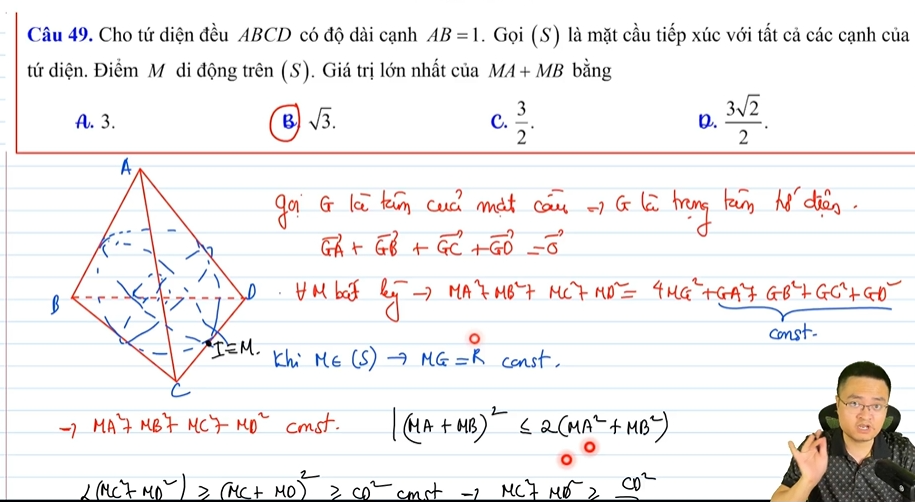 Câu 49. Cho tứ diện đều ABCD có độ dài cạnh AB = 1. Gọi (S) là mặt cầu tiếp xúc với tất cả các cạnh của
tứ diện. Điểm M di động trên (S). Giá trị lớn nhất của MA + MB bằng
A. 3. B. √3. C. 3/2. D. 3√2/2.
A
gọi G là tâm của mặt cầu → G là trọng tâm tứ diện.
GA→ + GB→ + GC→ + GD→ = 0→
B D
∀M bất kỳ → MA² + MB² + MC² + MD² = 4MG² + GA² + GB² + GC² + GD²
const.
I≡M.
Khi M∈(S) → MG = R const.
C
→ MA² + MB² + MC² + MD² const. (MA + MB)² ≤ 2(MA² + MB²)
2(MC² + MD²) ≥ (MC + MD)² ≥ CD² const → MC² + MD² ≥ CD²